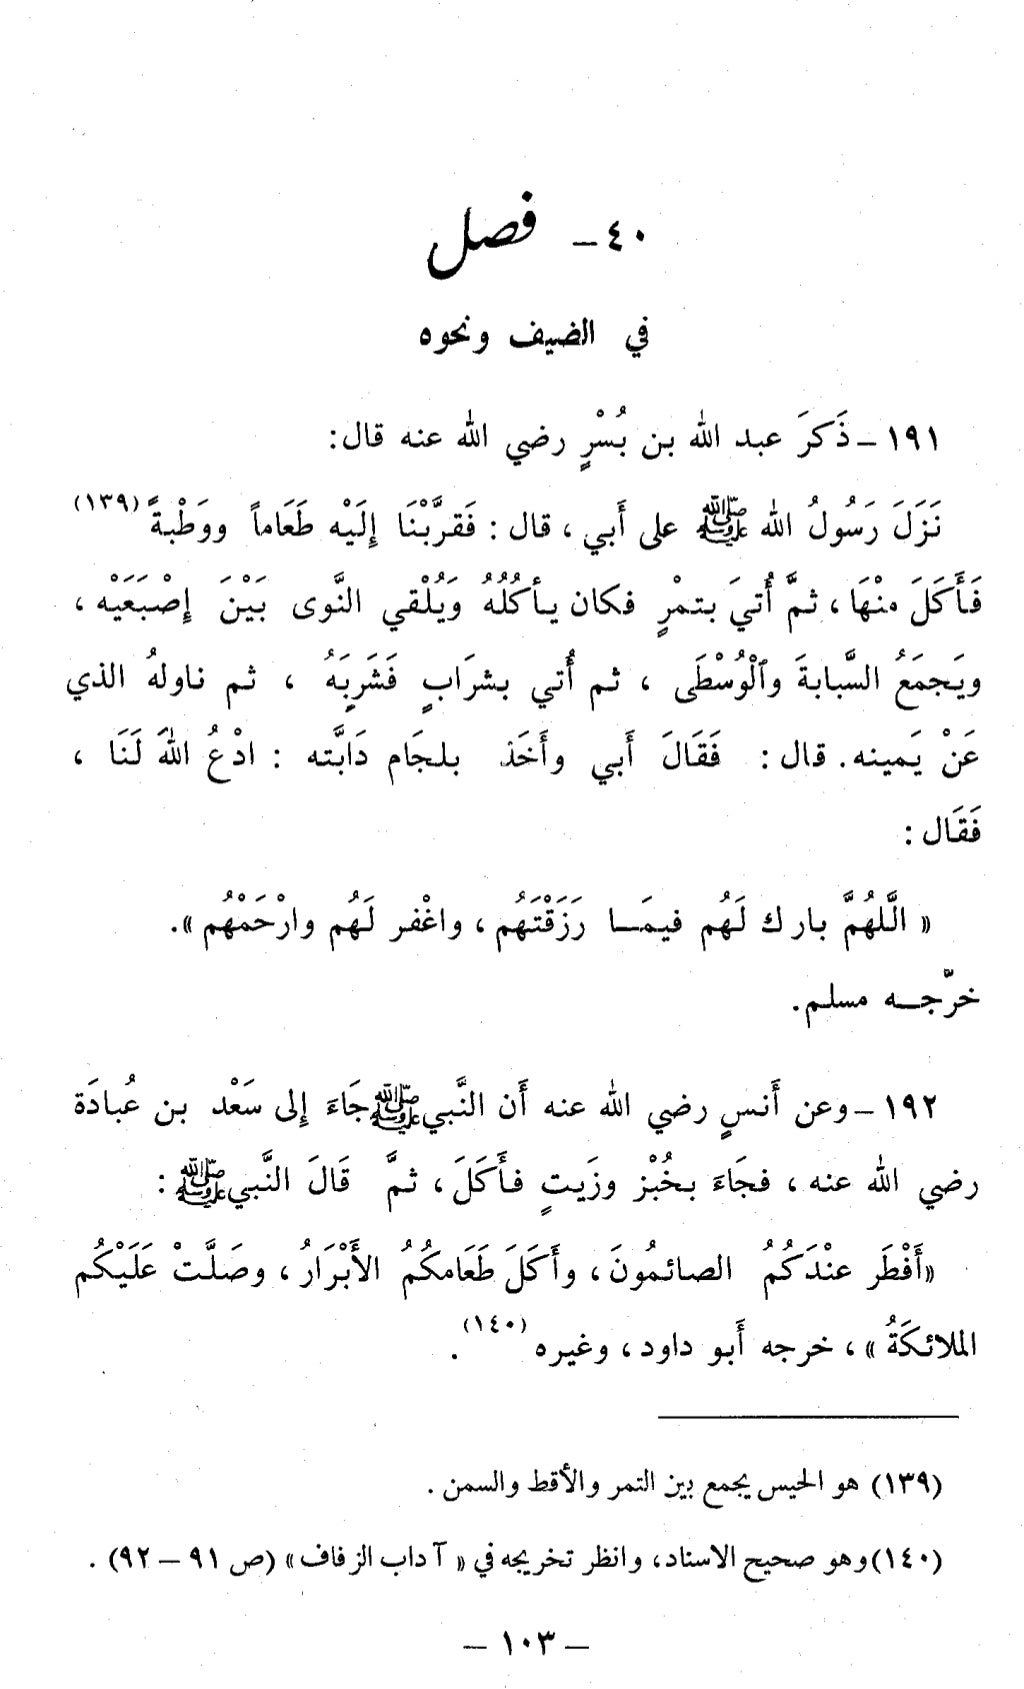 ٤٠ـ فصل
في الضيف ونحوه
١٩١ ـ ذَكرَ عبد الله بن بُسْرٍ رضي الله عنه قال:
نَزَلَ رَسُولُ الله ﷺ على أَبي ، قال : فَقرَّبْنَا إِلَيْه طَعَاماً ووَطْبةً (١٣٩)
فَأَكَلَ منْهَا ، ثمَّ أُتيَ بتمرٍ فكان يأكُلُهُ وَيُلْقي النَّوى بَيْنَ إِصْبَعَيْه ،
ويَجمَعُ السَّبابةَ وٱلْوُسْطَى ، ثم أُتي بشرَابٍ فَشَرِبَهُ ، ثم ناولهُ الذي
عَنْ يَمينه . قال : فَقَالَ أَبي وأَخَذ بلجَام دَابَّته : ادْعُ اللهَ لَنَا ،
فَقَال :
« الَّلهُمَّ بارك لَهُم فيمَا رَزَقْتَهُم ، واغْفر لَهُم وارْحَمْهُم » .
خرّجه مسلم .
١٩٢ ـ وعن أَنسٍ رضي الله عنه أَن النَّبي ﷺ جَاءَ إِلى سَعْد بن عُبادَة
رضي الله عنه ، فجَاءَ بخُبْز وزَيتٍ فأَكَلَ ، ثمَّ قَالَ النَّبي ﷺ :
«أَفْطَر عنْدَكُمُ الصائمُونَ ، وأَكَلَ طَعَامكُمُ الأَبْرَارُ ، وصَلَّتْ عَلَيْكُم
الملائكَةُ » ، خرجه أَبو داود ، وغيره (١٤٠) .
(١٣٩) هو الحيس يجمع بين التمر والأقط والسمن .
(١٤٠) وهو صحيح الاسناد ، وانظر تخريجه في « آداب الزفاف » (ص ٩١ – ٩٢) .
– ١٠٣ –